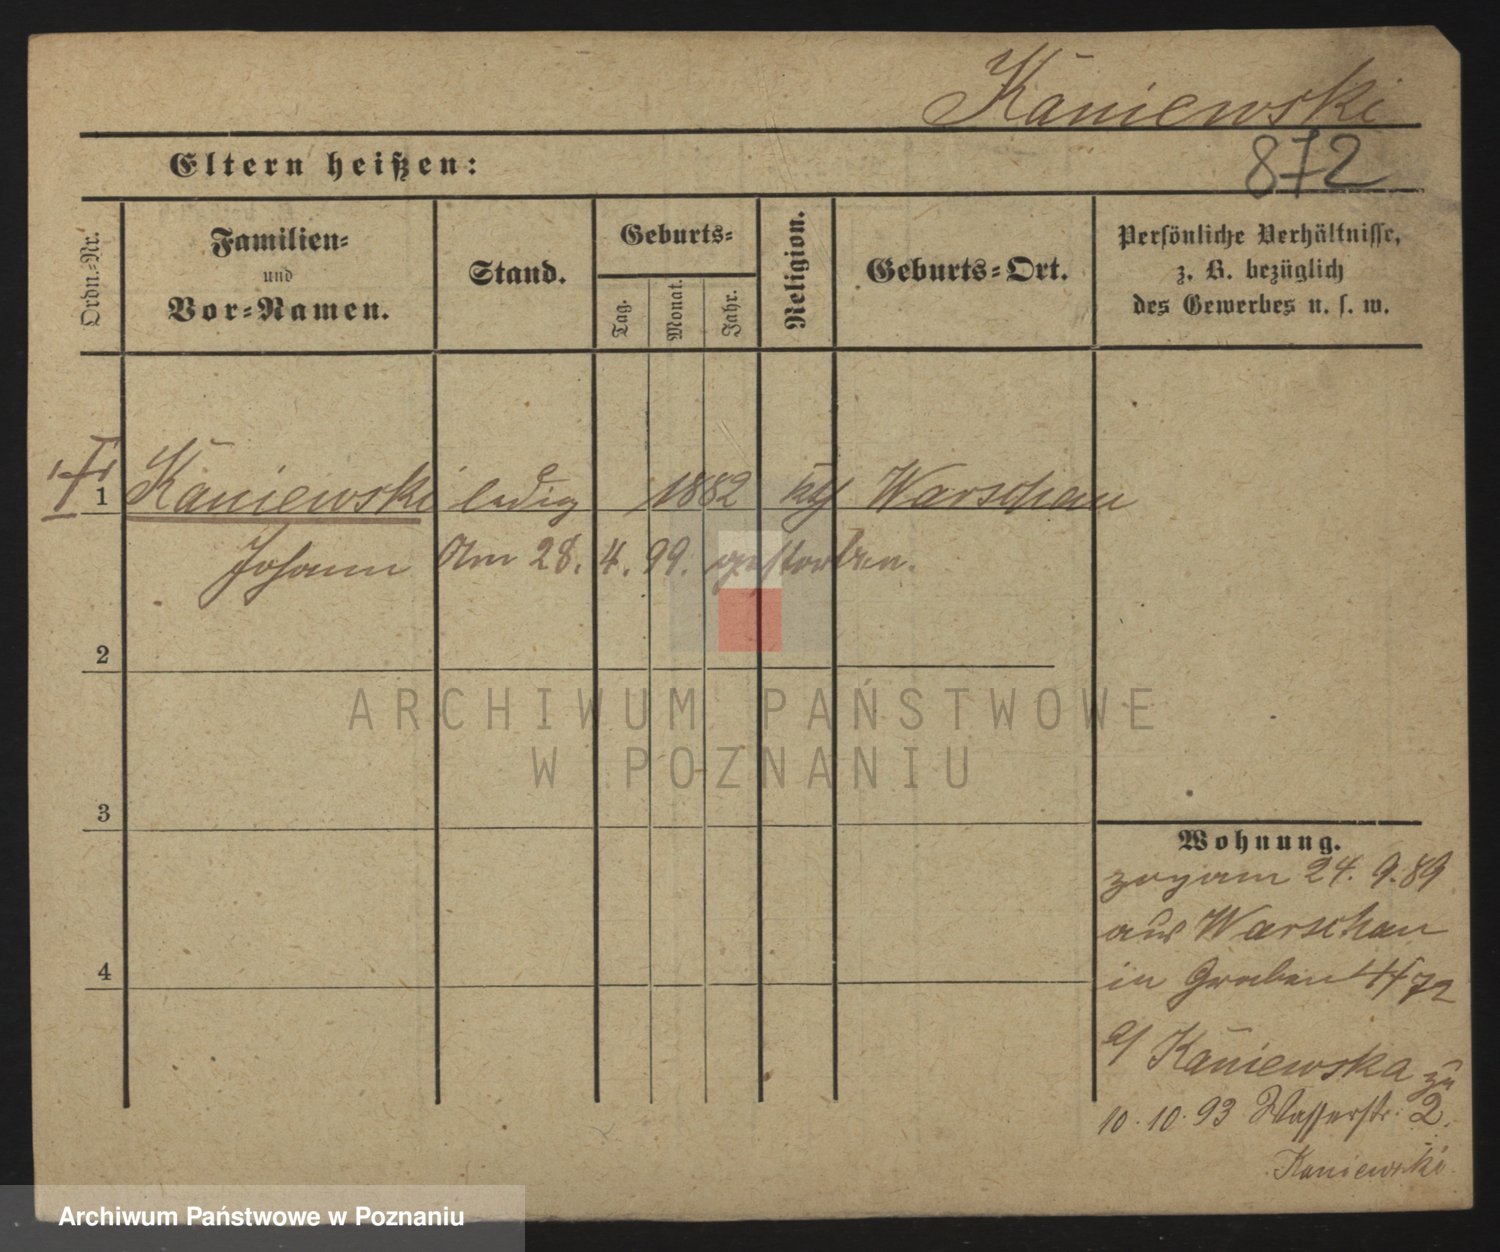 Kaniewski
872
Eltern heißen:
Ordn.=Nr.
Familien=
und
Vor=Namen.
Stand.
Geburts=
Tag.
Monat.
Jahr.
Religion.
Geburts=Ort.
Persönliche Verhältnisse,
z. B. bezüglich
des Gewerbes u. s. w.
1 Kaniewski ledig 1882 kth Warschau
Johann Am 28. 4. 99. gestorben.
2
3
4
Wohnung.
zog am 24. 9. 89
aus Warschau
in Graben
Kaniewska zu
10. 10. 93 Wasserstr. 2.
Kaniewski
ARCHIWUM PAŃSTWOWE
W POZNANIU
Archiwum Państwowe w Poznaniu